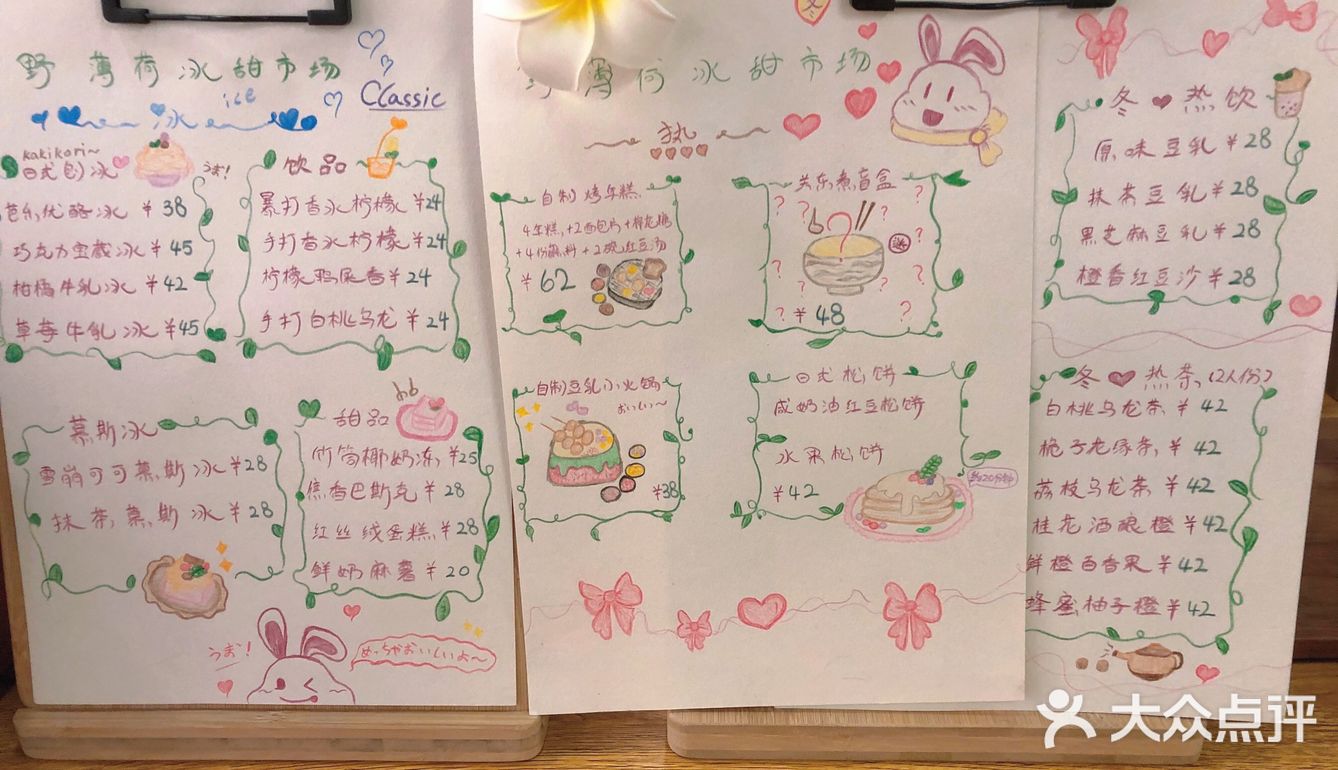 野薄荷冰甜市场
ice
Classic
冰
kakikori~
日式刨冰
うま!
芭乐优酪冰 ¥38
巧克力宝藏冰 ¥45
柑橘牛乳冰 ¥42
草莓牛乳冰 ¥45
饮品
暴打香水柠檬 ¥24
手打香水柠檬 ¥24
柠檬鸭屎香 ¥24
手打白桃乌龙 ¥24
慕斯冰
雪崩可可慕斯冰 ¥28
抹茶慕斯冰 ¥28
甜品
竹筒椰奶冻 ¥25
焦香巴斯克 ¥28
红丝绒蛋糕 ¥28
鲜奶麻薯 ¥20
うま!
めっちゃおいしいよ~
冬
薄荷冰甜市场
热
自制烤年糕
4年糕+2面包片+棉花糖
+4份蘸料+2碗红豆汤
¥62
关东煮盲盒
? ? ? ? ? ? ? ?
¥48
自制豆乳小火锅
おいしい~
¥38
日式松饼
咸奶油红豆松饼
水果松饼
¥42
约20分钟
冬❤热饮
原味豆乳 ¥28
抹茶豆乳 ¥28
黑芝麻豆乳 ¥28
橙香红豆沙 ¥28
冬❤热茶(2人份)
白桃乌龙茶 ¥42
栀子龙绿茶 ¥42
荔枝乌龙茶 ¥42
桂花酒酿橙 ¥42
鲜橙百香果 ¥42
蜂蜜柚子橙 ¥42
大众点评